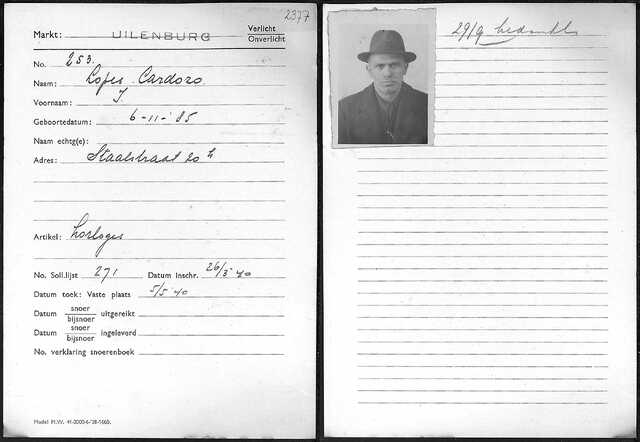 2377
Markt: UILENBURG Verlicht
Onverlicht
No. 253.
Naam: Lopes Cardozo
Voornaam: J.
Geboortedatum: 6-11-'85
Naam echtg(e):
Adres: Staalstraat 20 h
Artikel: horloges
No. Soll.lijst 271 Datum Inschr. 26/3 '40
Datum toek: Vaste plaats 5/5 '40
Datum snoer bijsnoer uitgereikt
Datum snoer bijsnoer ingeleverd
No. verklaring snoerenboek
Model M.W. 41-2000-6-'38-1665.
29/9